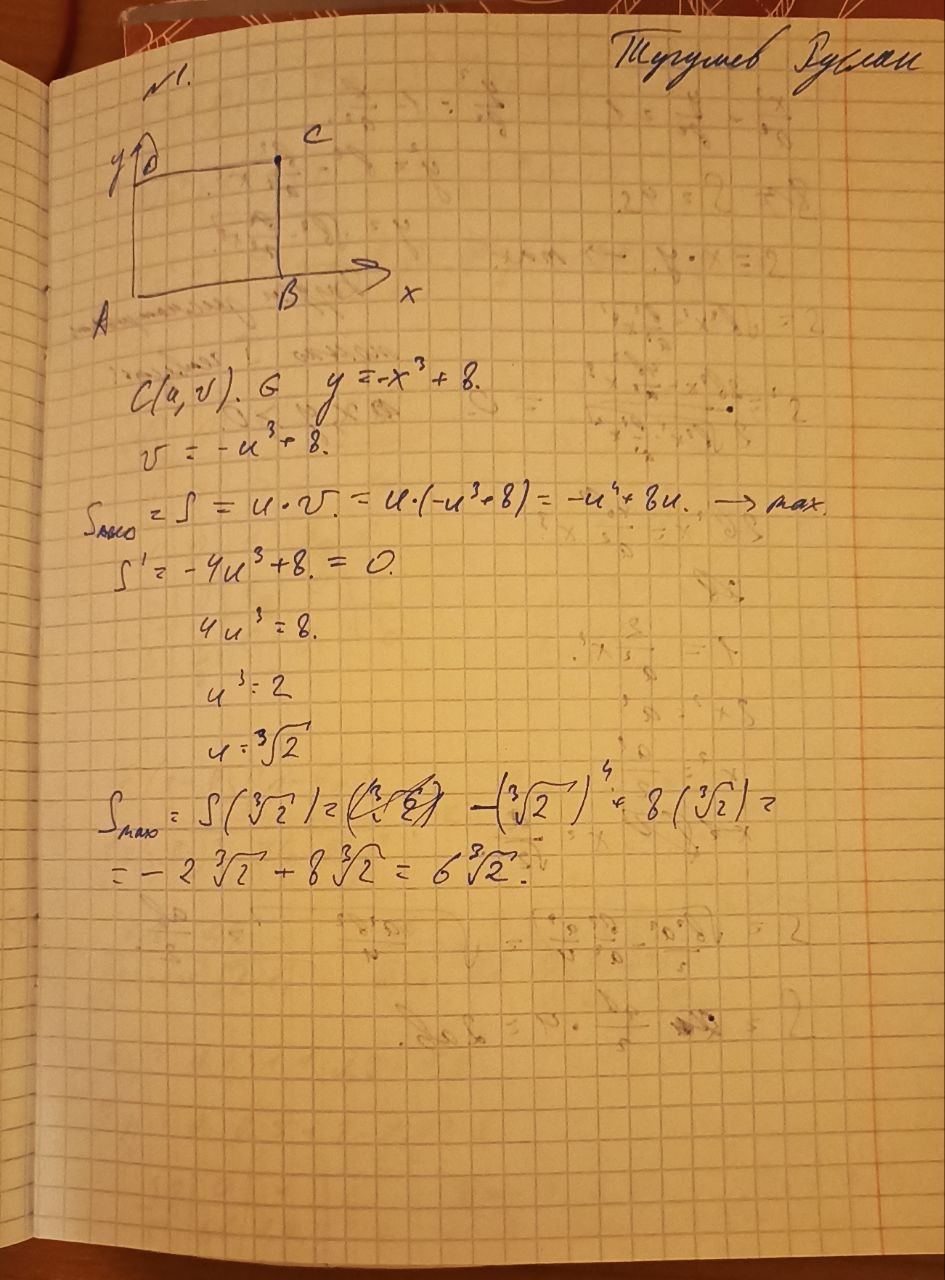 Тугушев Руслан
№1.
y D C
A B x
C(u, v). ∈ y = -x³ + 8.
v = -u³ + 8.
S = u · v. = u·(-u³+8) = -u⁴ + 8u. → max.
S' = -4u³ + 8. = 0.
4u³ = 8.
u³ = 2
u = ³√2
Sₘₐₓ = S(³√2) = -(³√2)⁴ + 8(³√2) =
= - 2 ³√2 + 8 ³√2 = 6 ³√2.